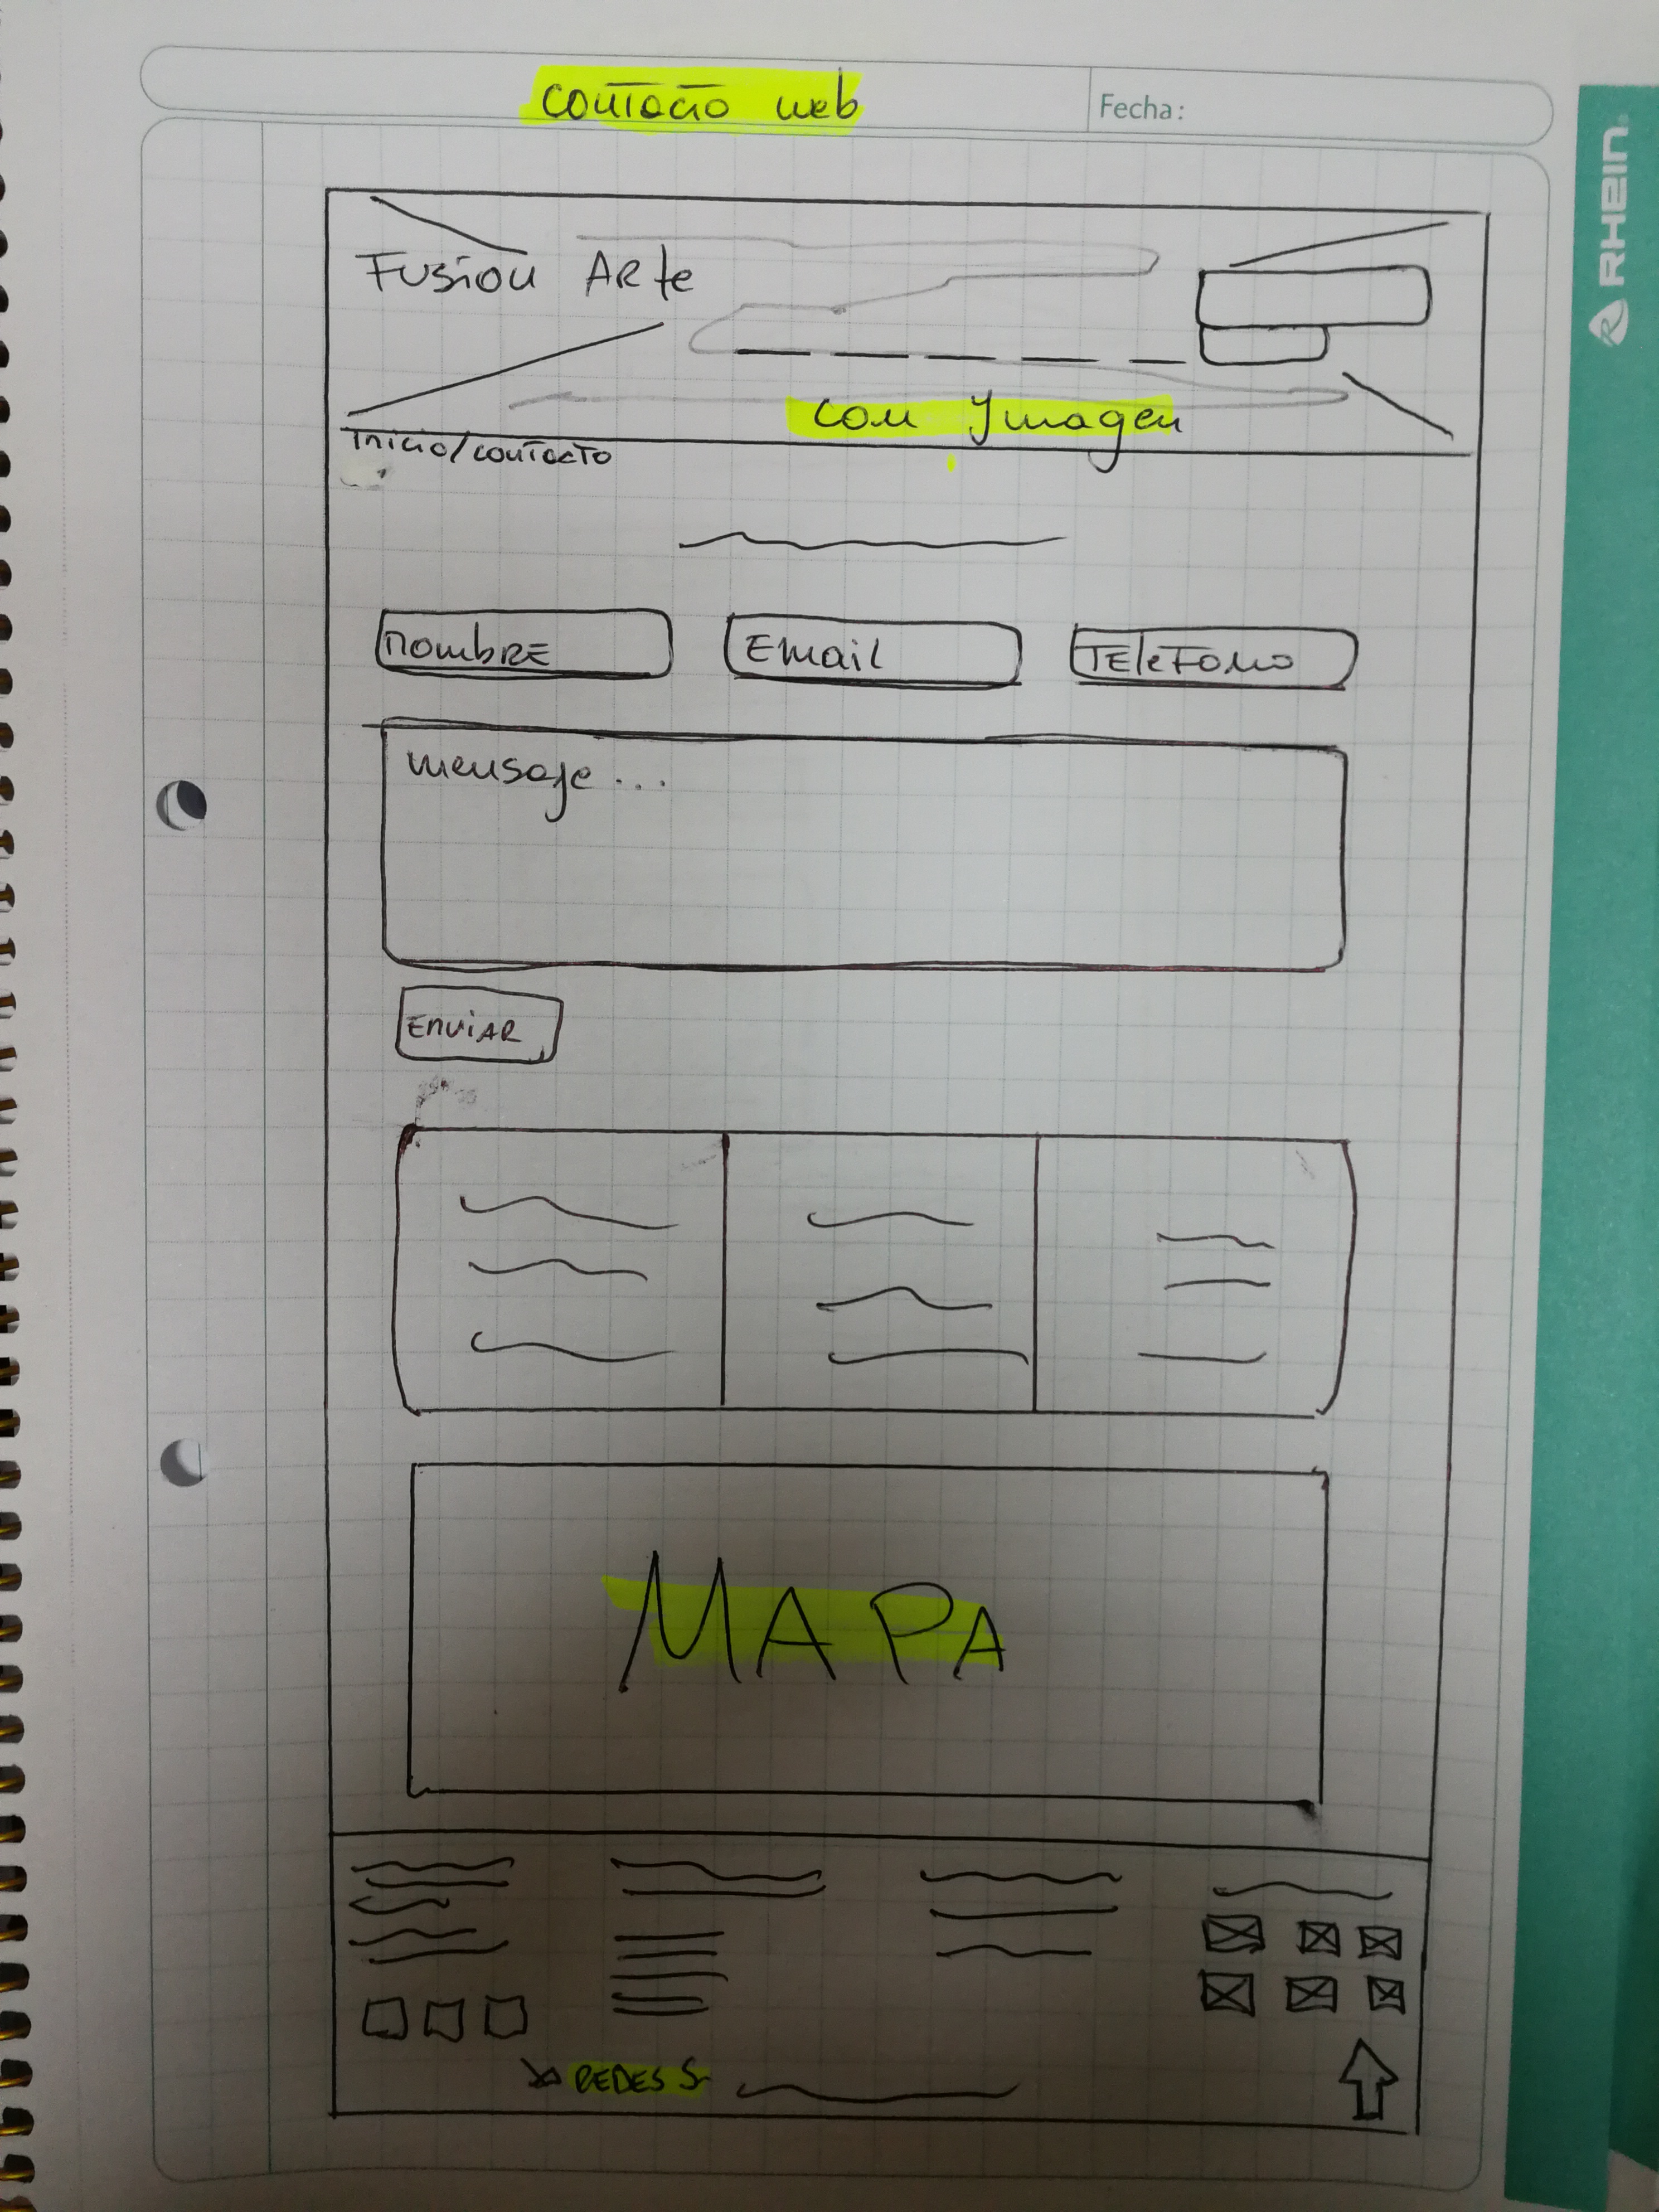 contacto web
Fecha:
RHEIN
Fusion Arte
con Imagen
Inicio/contacto
nombre
Email
Telefono
mensaje...
Enviar
MAPA
REDES S